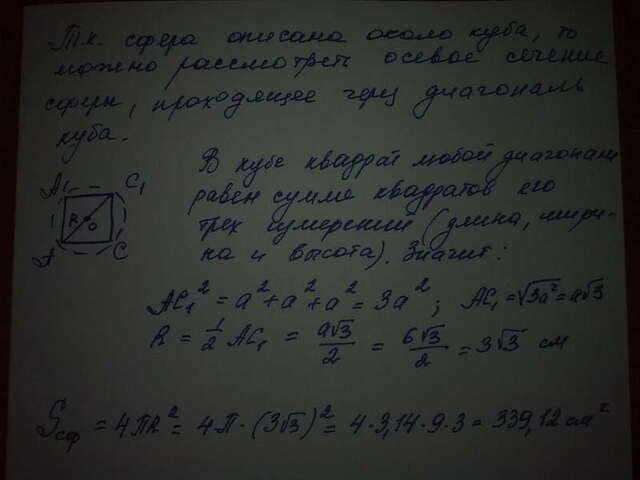 Т.к. сфера описана около куба, то
можно рассмотреть осевое сечение
сферы, проходящее через диагональ
куба.
В кубе квадрат любой диагонали
равен сумме квадратов его
трех измерений (длина, шири-
на и высота). Значит:
A₁ C₁
R O
A C
AC₁² = a² + a² + a² = 3a² ; AC₁ = √3a² = a√3
R = 1/2 AC₁ = a√3/2 = 6√3/2 = 3√3 см
Sсф = 4ПR² = 4П·(3√3)² = 4·3,14·9·3 = 339,12 см²